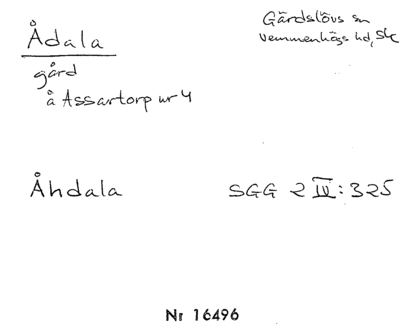 Ådala
Gärdslövs sn
Vemmenhögs hd, Sk
gård
å Assartorp nr 4
Åhdala SGG 2 IV:325
Nr 16496